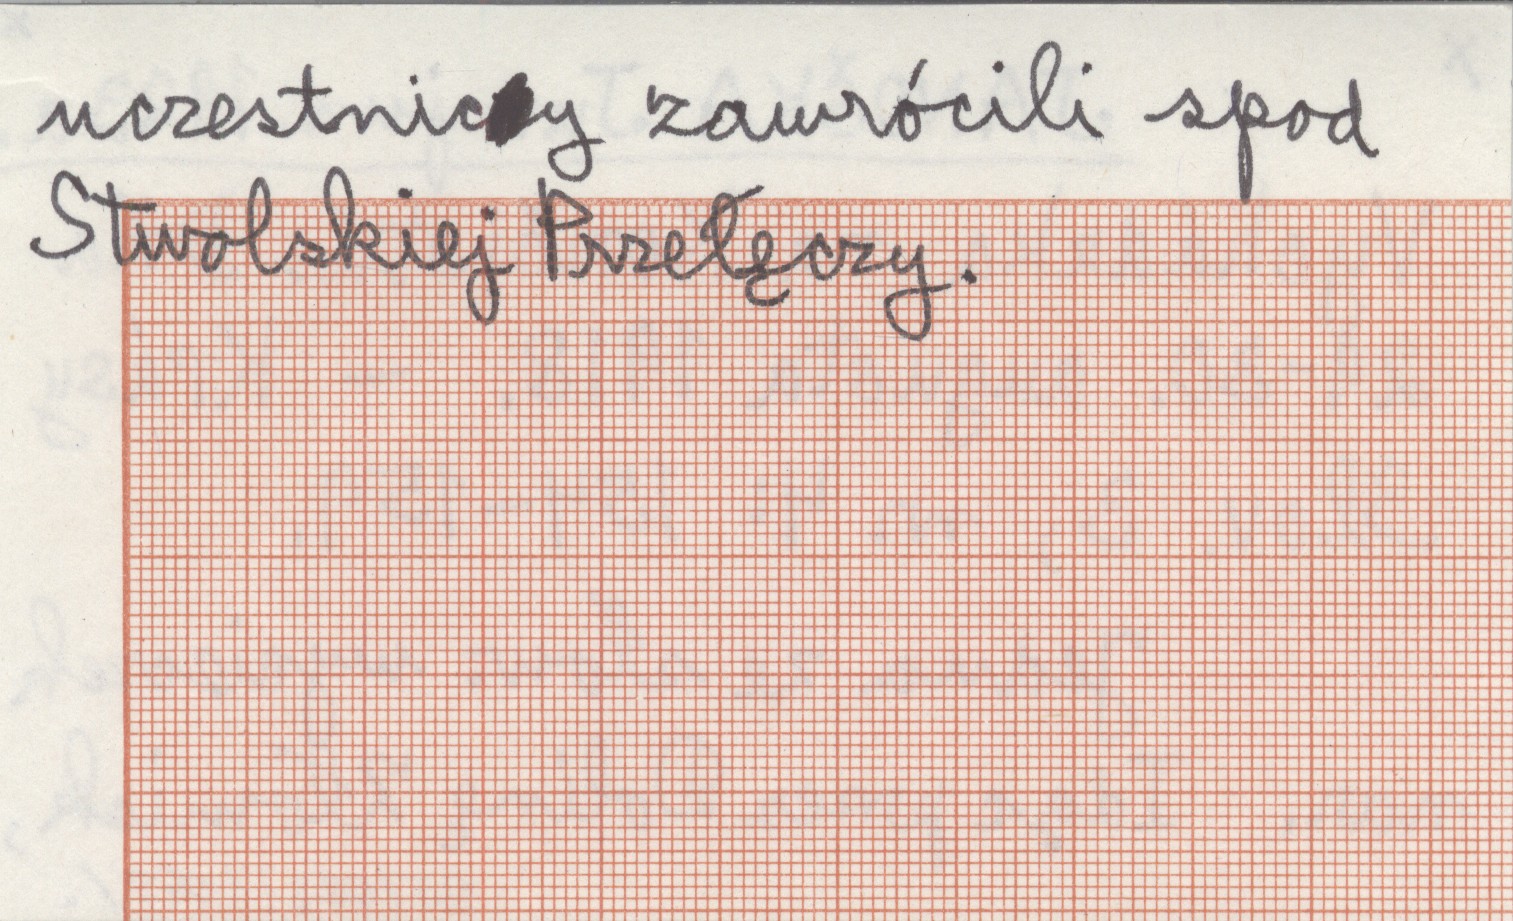 uczestnicy zawrócili spod
Stwolskiej Przełęczy.